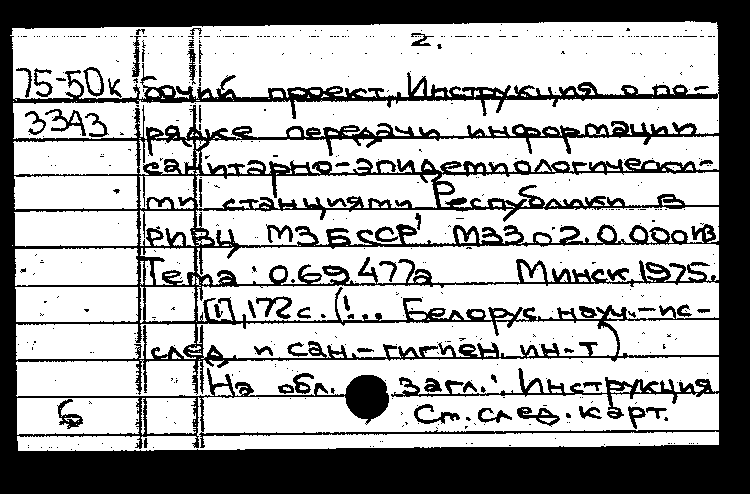 2.
75-50к бочий проект „Инструкция о по-
3343 рядке передачи информации
санитарно-эпидемиологически-
ми станциями Республики в
РИВЦ МЗ БССР". МЗЗ.02.0.000ПЗ
Тема: 0.69.477а. Минск, 1975.
[1], 172 с. (!... Белорус. науч.-ис-
след. п сан.-гигиен. ин-т).
На обл. загл.: Инструкция
Б Ст. след. карт.